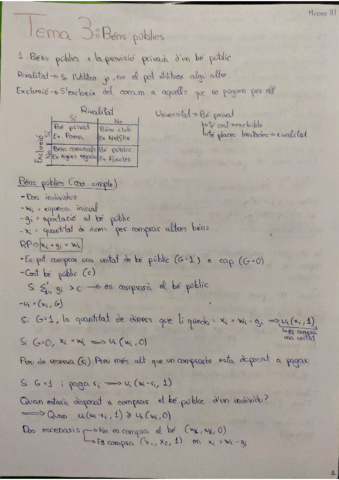 Micro III
Tema 3: Béns públics
1. Béns públics i la provisió privada d'un bé públic
Rivalitat → Si l'utilitzo jo, no el pot utilitzar algú altre.
Exclusió → S'exclouen del consum a aquells que no paguen per ell
Rivalitat
Sí No
Universitat → Bé privat
Exclusió
Sí
Bé privat
Ex. Poma
Béns club
Ex. Netflix
↳ excloïble
↳ places limitades → rivalitat
No
Béns comunals
Ex. Aigües
Bé públic
Ex. Fanales
Béns públics (cas simple)
- Dos individus
- wi = riquesa inicial
- gi = aportació al bé públic
- xi = quantitat de diners per comprar altres béns
RP: xi + gi = wi
- Es pot comprar una unitat de bé públic (G=1) o cap (G=0)
- Cost bé públic (c)
gi > c → es comprarà el bé públic
- ui = (xi, G)
Si G=1, la quantitat de diners que li queda: xi = wi - gi ⟹ ui (xi, 1)
una unitat
Si G=0, xi = wi ⟹ ui (xi, 0)
Preu de reserva (ri) Preu més alt que un comprador està disposat a pagar.
Si G=1 i paga ri ⟹ ui (wi - ri, 1)
Quan estaria disposat a comprar el bé públic d'un individu?
⟹ Quan ui (wi - ri, 1) ≥ ui (wi, 0)
Dos escenaris → No es compra
→ Es compra (x1, x2, 1) on xi = wi - gi
1